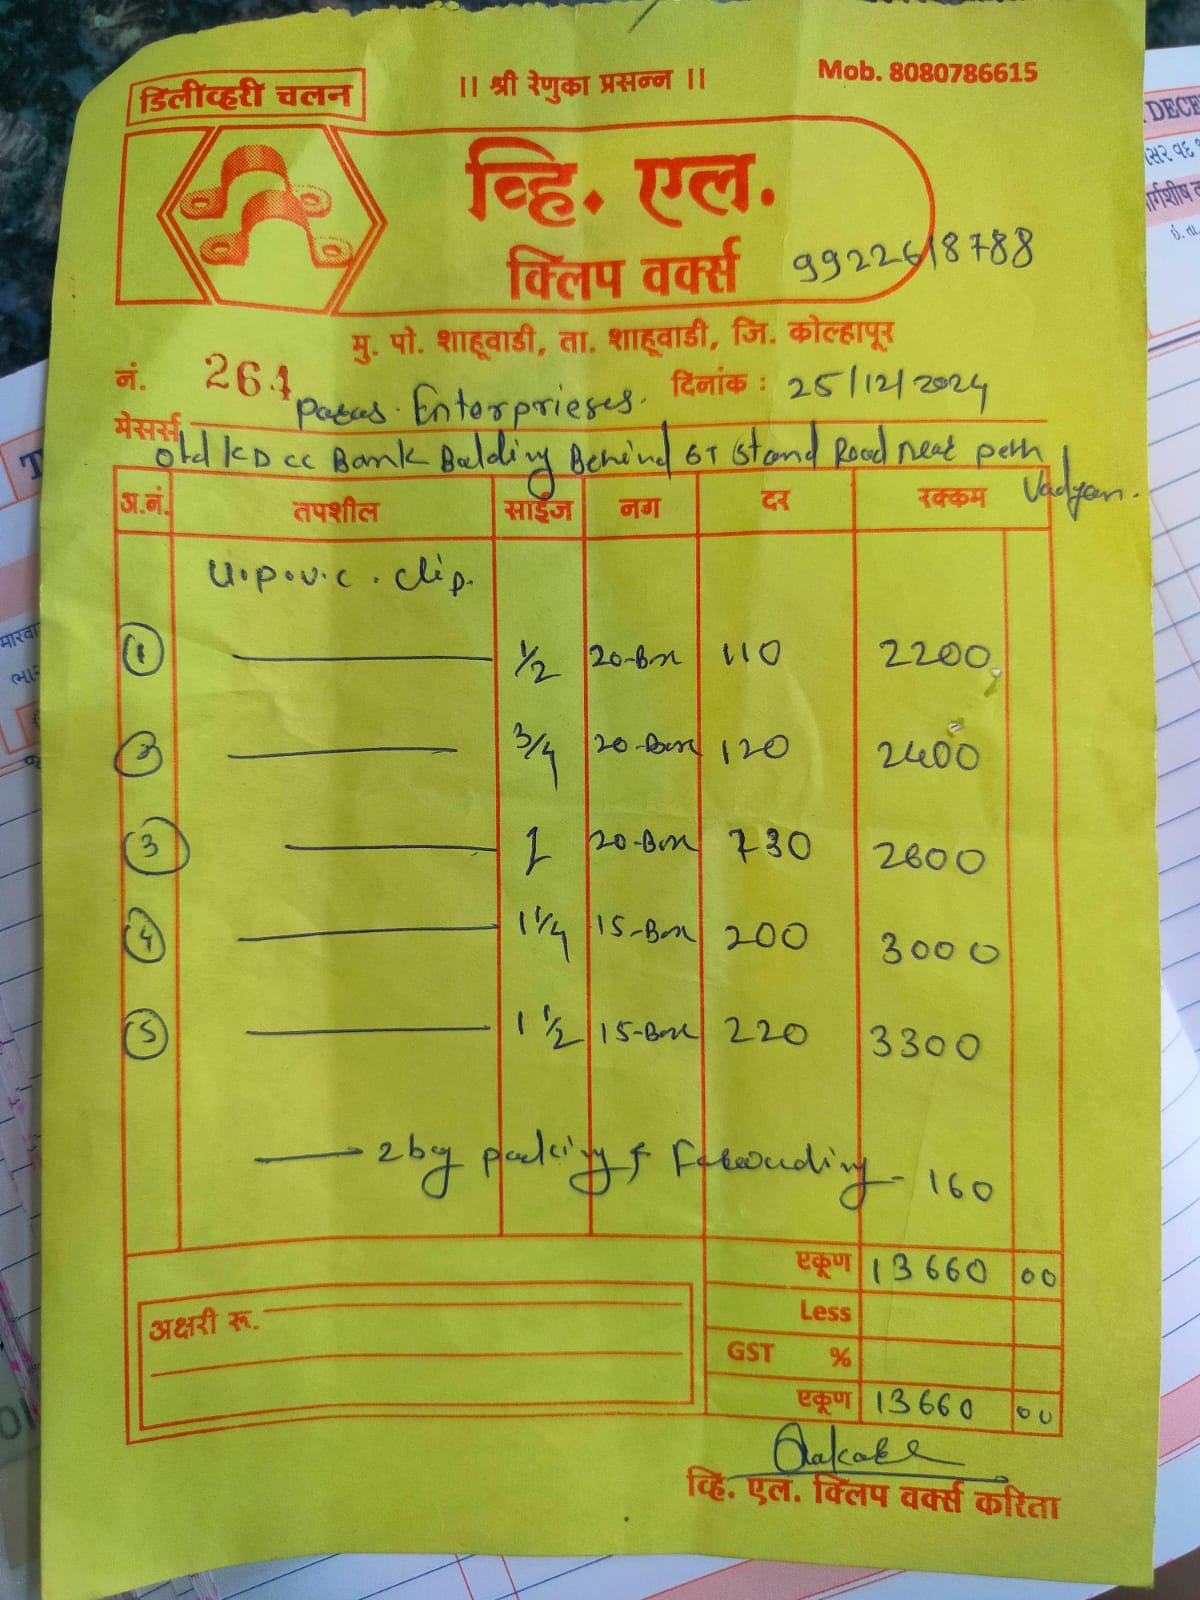 डिलीव्हरी चलन
।। श्री रेणुका प्रसन्न ।।
Mob. 8080786615
व्हि. एल.
क्लिप वर्क्स
9922618788
मु. पो. शाहूवाडी, ता. शाहूवाडी, जि. कोल्हापूर
नं. 261 दिनांक : 25/12/2024
मेसर्स Paras Enterprieses.
Old KDCC Bank Building Behind ST Stand Road near peth Vadgaon.
अ.नं. तपशील साईज नग दर रक्कम
U.P.V.C. Clip.
1 1/2 20-Box 110 2200
2 3/4 20-Box 120 2400
3 1 20-Box 130 2600
4 1 1/4 15-Box 200 3000
5 1 1/2 15-Box 220 3300
2 bag packing & Forwarding - 160
एकूण 13660 00
Less
अक्षरी रू.
GST %
एकूण 13660 00
व्हि. एल. क्लिप वर्क्स करिता